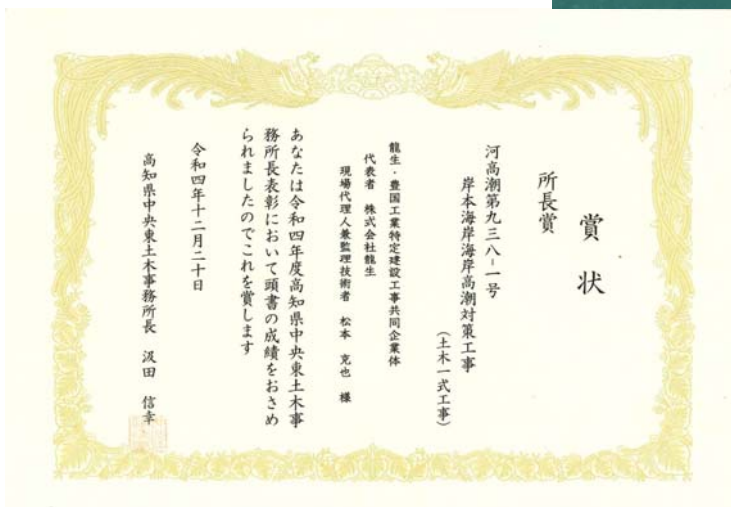 賞状
所長賞
河高潮第九三八-一号
岸本海岸海岸高潮対策工事
(土木一式工事)
龍生・豊国工業特定建設工事共同企業体
代表者 株式会社龍生
現場代理人兼監理技術者 松本 克也 様
あなたは令和四年度高知県中央東土木事
務所長表彰において頭書の成績をおさめ
られましたのでこれを賞します
令和四年十二月二十日
高知県中央東土木事務所長 汲田 信幸